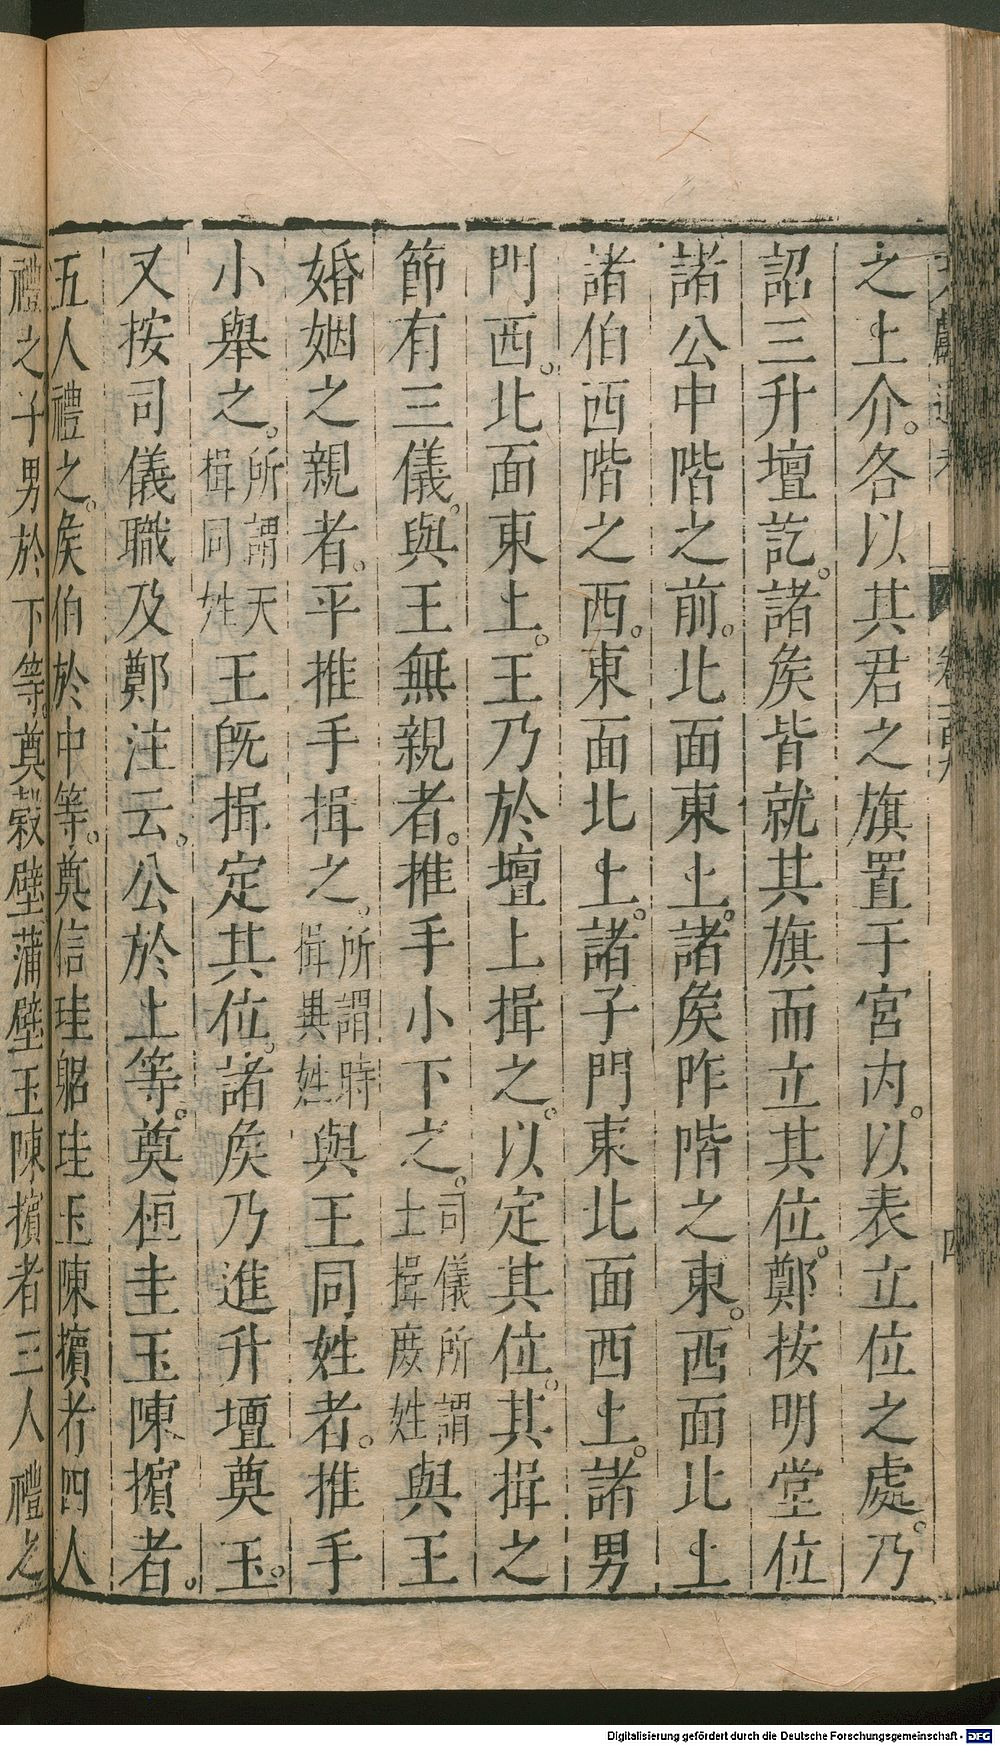 之上介。各以其君之旗置于宮内。以表立位之處。乃
詔三升壇訖。諸矦皆就其旗而立其位。鄭按明堂位
諸公中階之前。北面東上。諸矦阼階之東。西面北上
諸伯西階之西。東面北上。諸子門東北面西上。諸男
門西。北面東上。王乃於壇上揖之。以定其位。其揖之
節有三儀。與王無親者。推手小下之。司儀所謂土揖庶姓與王
婚姻之親者。平推手揖之。所謂時揖異姓與王同姓者。推手
小舉之。所謂天揖同姓王旣揖定其位。諸矦乃進升壇奠玉。
又按司儀職及鄭注云。公於上等。奠桓圭玉陳擯者。
五人禮之。矦伯於中等。奠信珪躬珪玉陳擯者四人
禮之子男於下等。奠穀璧蒲璧玉陳擯者三人禮之
Digitalisierung gefördert durch die Deutsche Forschungsgemeinschaft - DFG